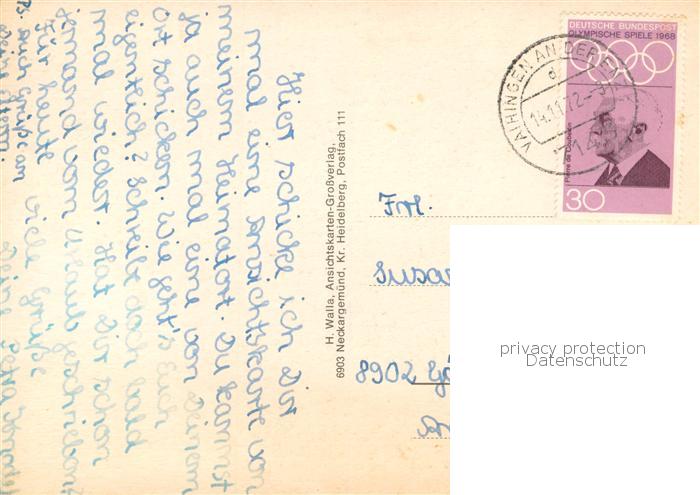 Hier schicke ich Dir
mal eine Ansichtskarte von
meinem Heimatort. Du kannst
ja auch mal eine von Deinem
Ort schicken. Wie geht's Dir
eigentlich? Schreibt doch bald
mal wieder. Hat Dir schon
jemand vom Urlaub geschrieben?
Für heute viele Grüße
Deine Petra
Ps. Auch Grüße an
Deine Eltern.
H. Walla, Ansichtskarten-Großverlag,
6903 Neckargemünd, Kr. Heidelberg, Postfach 111
DEUTSCHE BUNDESPOST
OLYMPISCHE SPIELE 1968
Pierre de Coubertin
30
VAIHINGEN AN DER
d
14.11.72
Frl.
Susan
8902 Gö
privacy protection
Datenschutz